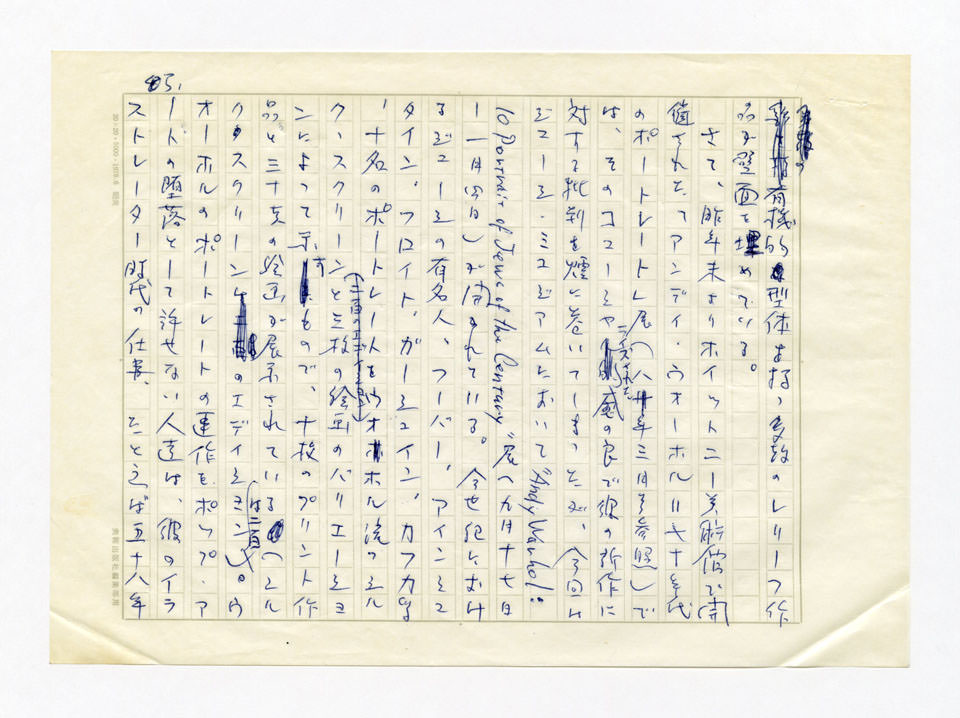 の
有機的な型体を持つ多数のレリーフ作
品が壁面を埋めている。
さて、昨年末よりホイットニー美術館で開
催されたアンディ・ウォーホル＝七十年代
のポートレート展（八十年三月号参照）で
は、そのコマーシャライズされた感の良で彼の新作に
対する批判を煙に巻いてしまったが、今回は
ジューイシュ・ミュージアムにおいて“Andy Warhol:
10 Portrait of Jews of the Century”展（九月十七日
ー一月四日）が開かれている。今世紀におけ
るジューイシュの有名人、ブーバー、アインシュ
タイン、フロイト、ガーシュイン、カフカ等
、十名のポートレートをウォーホル流のシル
ク・スクリーンと三枚の絵画のバリエーショ
ンによって示すもので、十枚のプリント作
品と三十点の絵画が展示されている（シル
クスクリーンは二百のエディション）。ウ
オーホルのポートレートの連作を、ポップ・ア
ートの堕落として許せない人達は、彼のイラ
ストレーター時代の仕事、たとえば五十八年
20×20